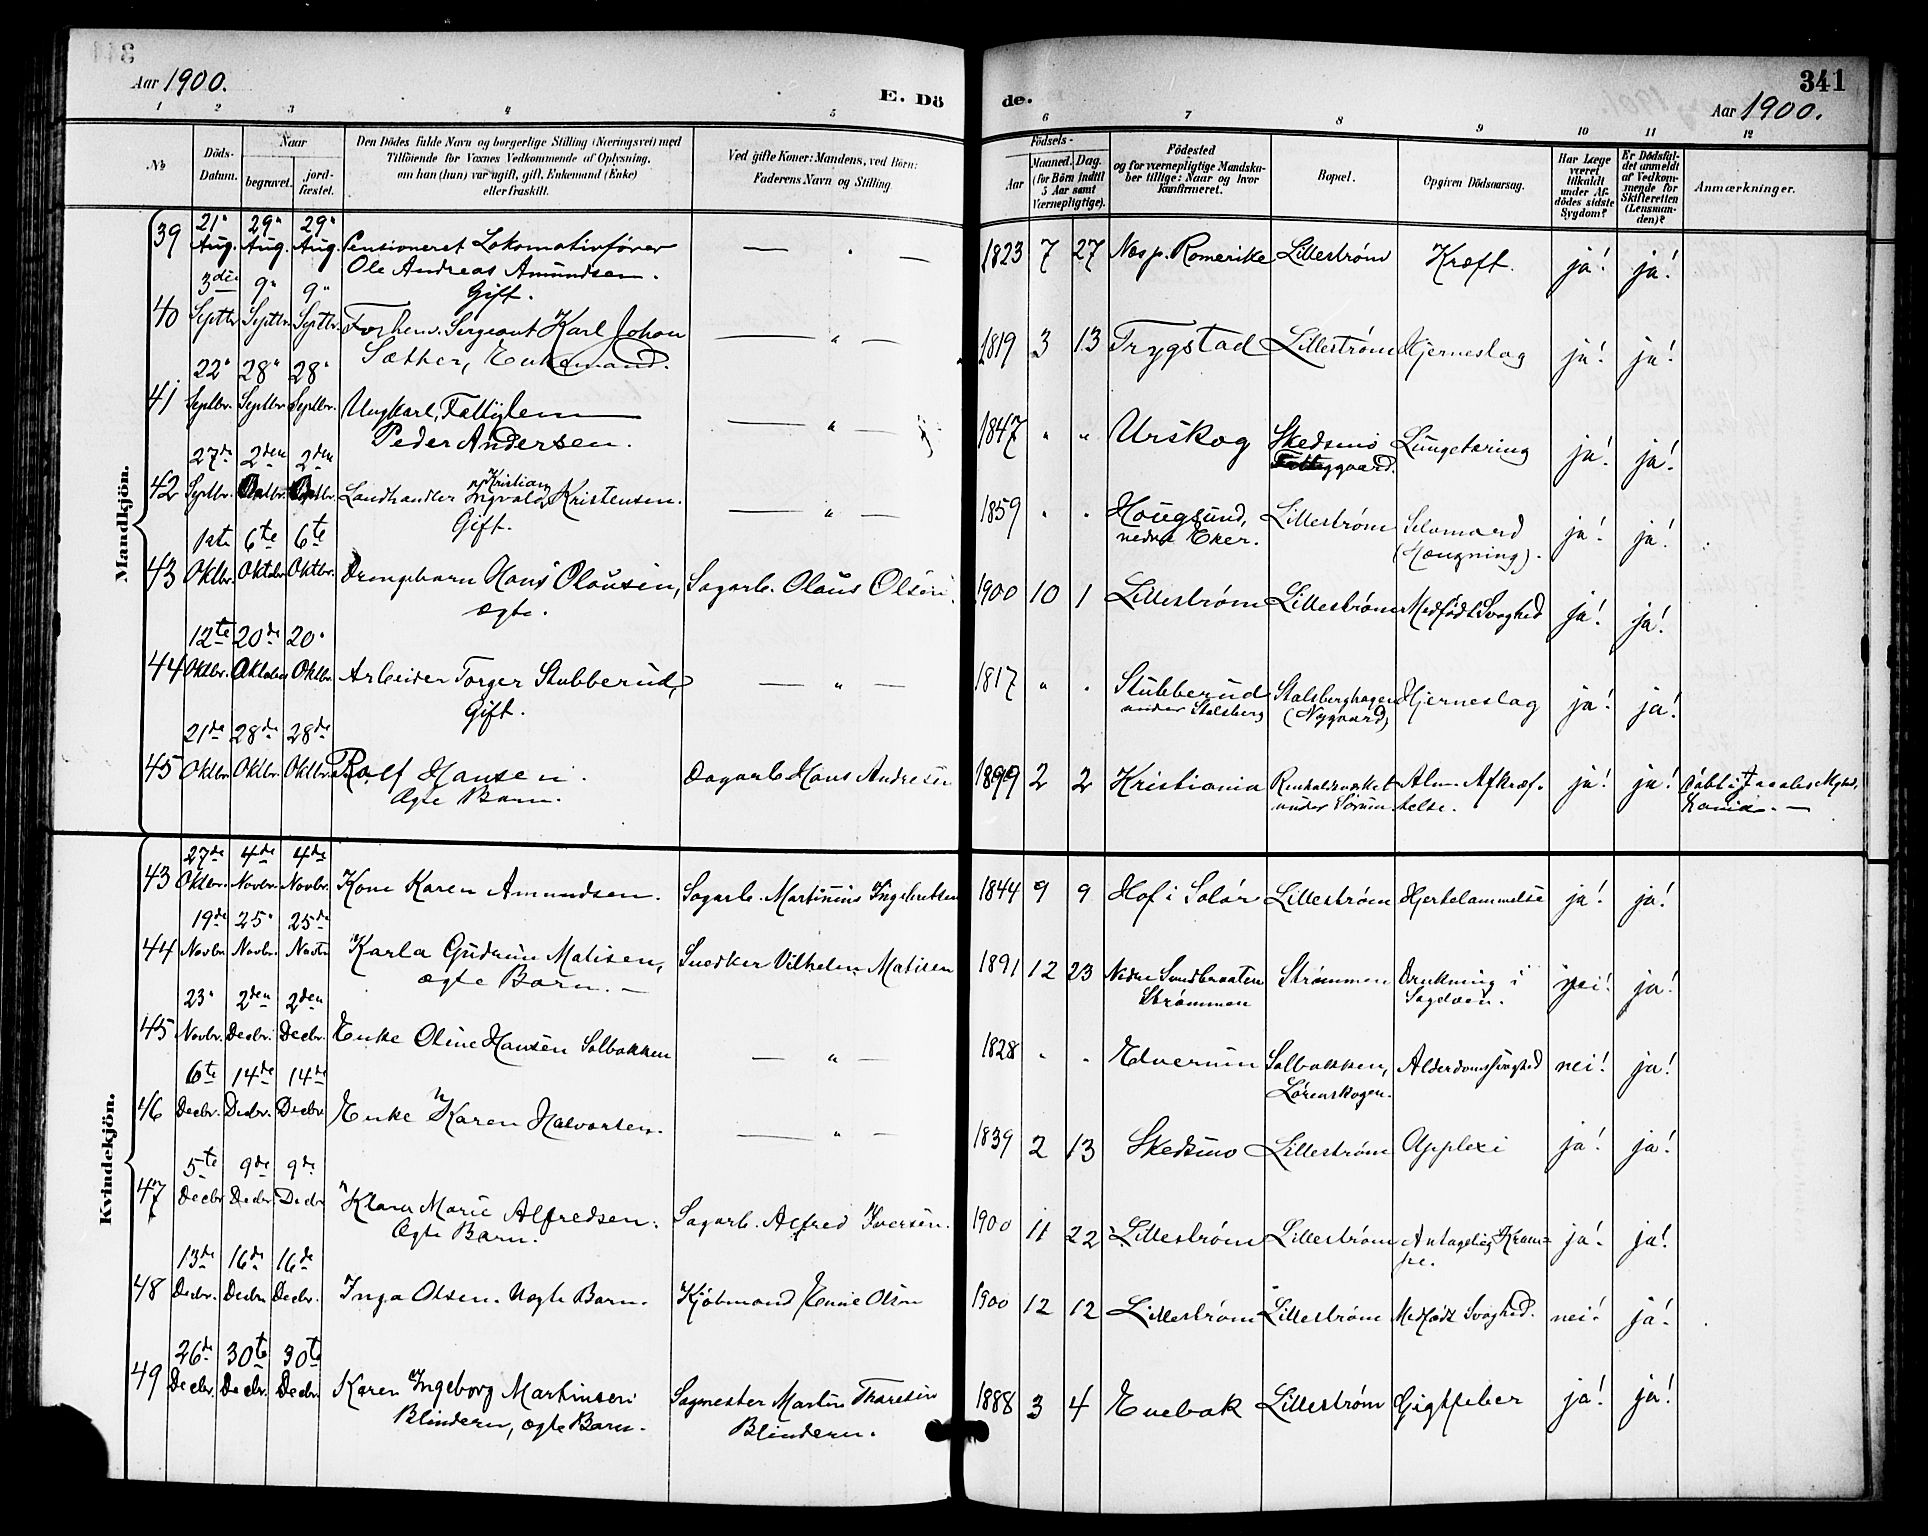 341
Aar 1900.
E. Dö
de.
Aar 1900.
1 2 3 4 5 6 7 8 9 10 11 12
№
Döds-
Datum.
Naar
begravet.
jord-
fæstet.
Den Dödes fulde Navn og borgerlige Stilling (Næringsvei) med
Tilföiende for Voxnes Vedkommende af Oplysning,
om han (hun) var ugift, gift, Enkemand (Enke)
eller fraskilt.
Ved gifte Koner: Mandens, ved Börn:
Faderens Navn og Stilling.
Födsels-
Aar
Maaned. Dag.
(for Börn indtil
5 Aar samt
Værnepligtige).
Födested
og for værnepligtige Mandska-
ber tillige: Naar og hvor
konfirmeret.
Bopæl.
Opgiven Dödsaarsag.
Har Læge
været
tilkaldt
under Af-
dödes sidste
Sygdom?
Er Dödsfal-
det anmeldt
af Vedkom-
mende for
Skifteretten
(Lensman-
den)?
Anmærkninger.
Mandkjön.
39 21" Aug. 29" Aug. 29" Aug. Pensioneret Lokomotivfører — " — 1823 7 27 Nes p. Romerike Lillestrøm Kræft. ja! ja!
Ole Andreas Amundsen.
Gift.
40 3die Septbr. 9" Septbr. 9" Septbr. Forhenv. Sergeant Karl Johan — " — 1819 3 13 Trygstad Lillestrøm Hjerneslag ja! ja!
Sæther, Enkemand.
41 22" Septbr. 28" Septbr. 28" Septbr. Ungkarl, Fattiglem — " — 1847 " " Urskog Skedsmo Lungetæring ja! ja!
Peder Andersen.
Fattiggaard.
42 27de Septbr. 2den Oktbr. 2den Oktbr. Landhandler Ingvald Kristian Kristensen. — " — 1859 " " Hougsund, Lillestrøm Selvmord ja! ja!
Gift.
nedre Eker.
(Hængning).
43 1ste Oktbr. 6te Oktbr. 6te Oktbr. Drengebarn Hans Olausen, Sagarb. Olaus Olsen. 1900 10 1 Lillestrøm Lillestrøm Medfødt Svaghed ja! ja!
ægte.
44 12te Oktbr. 20de Oktober 20" Oktbr. Arbeider Torger Stubberud, — " — 1817 " " Stubberud Stalsberghagen Hjerneslag ja! ja!
Gift.
under Stalsberg
(Nygaard)
45 21de Oktbr. 28de Oktbr. 28de Oktbr. Rolf Hansen. Dagarb. Hans Andresen 1899 2 2 Kristiania under Sørum Alm. Afkræf- ja! ja! Døbt i
Ægte Barn.
telse.
Kania. —
Kvindekjön.
43 27de Oktbr. 4de Novbr. 4de Novbr. Kone Karen Amundsen. Sagarb. Martinius Ingebretsen 1844 9 9 Hof i Solør Lillestrøm Hjertelammelse ja! ja!
44 19de Novbr. 25" Novbr. 25de Novbr. Karla Gudrun Matisen, Snedker Vilhelm Matisen 1891 12 23 Nedre Sundbraaten Strømmen Drukning i nei! ja!
ægte Barn. —
Strømmen
Sagelven.
45 23" Novbr. 2den Decbr. 2den Decbr. Enke Oline Hansen Solbakken — " — 1828 " " Elverum Solbakken, Alderdomssvaghed nei! ja!
Lørenskogen.
46 6te Decbr. 14de Decbr. 14de Decbr. Enke Karen Halvorsen. — " — 1839 2 13 Skedsmo Lillestrøm Applexi ja! ja!
47 5te Decbr. 9de Decbr. 9de Decbr. Klara Marie Alfredsen. Sagarb. Alfred Iversen. 1900 11 22 Lillestrøm Lillestrøm Antagelig Kram- ja! ja!
Ægte Barn.
pe.
48 13de Decbr. 16de Decbr. 16de Decbr. Inga Olsen. Uægte Barn. Kjöbmand Olsen 1900 12 12 Lillestrøm Lillestrøm Medfødt Svaghed. nei! ja!
49 26de Decbr. 30te Decbr. 30te Decbr. Karen Ingeborg Martinsen Sagmester Martin Thoresen 1888 3 4 Enebak Lillestrøm Gigtfeber ja! ja!
Blindern, ægte Barn.
Blindern.